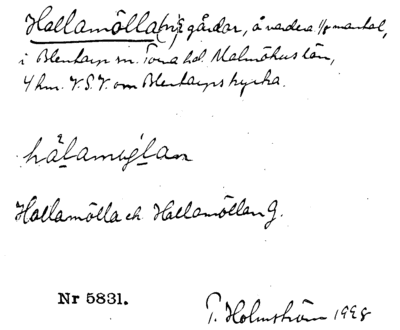 Hallamölla(n), 2 gårdar, å vardera 1/8 mantal,
i Blentarp sn. Torna hd. Malmöhus län,
4 km. V.S.V. om Blentarps kyrka.
Hallamölla ch Hallamöllan g.
Nr 5831.
T. Holmström 1998